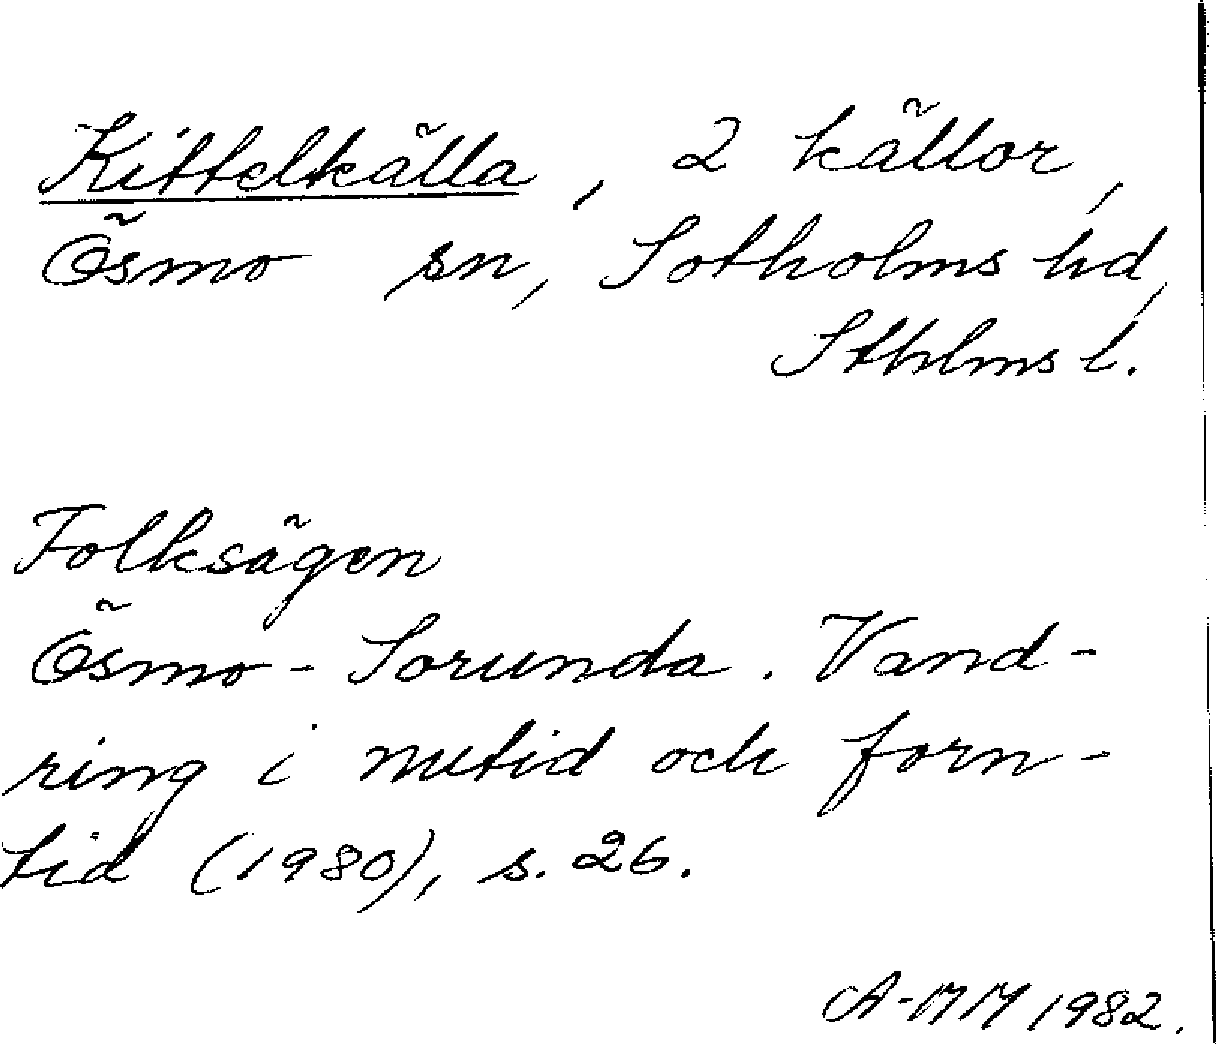 Kittelkälla, 2 källor,
Ösmo sn, Sotholms hd,
Sthlms l.
Folksägen
Ösmo - Sorunda. Vand-
ring i nutid och forn-
tid (1980), s. 26.
A-MM 1982.